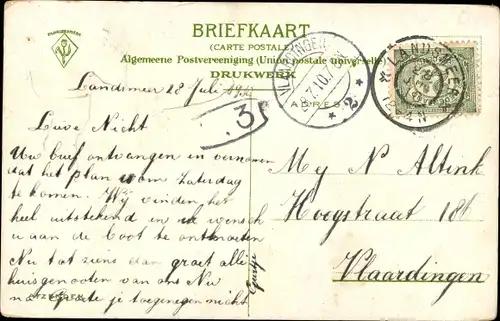 BRIEFKAART
(CARTE POSTALE)
Algemeene Postvereeniging (Union postale universelle)
DRUKWERK
ADRES
VLAARDINGEN
28.7.10.7
* 2 *
LANDSMEER
Landsmeer 28 Juli
3
Lieve Nicht
Uw brief ontvangen en vernomen
dat het plan was om Zaterdag
te komen. Wij vinden het
heel uitstekend en wensch
u aan de boot te ontmoeten
Nu tot ziens dan groet alle
huisgenooten van ons Nu
na groete je toegenegen nicht
Geertje
Mej N Altink
Hoogstraat 186
Vlaardingen